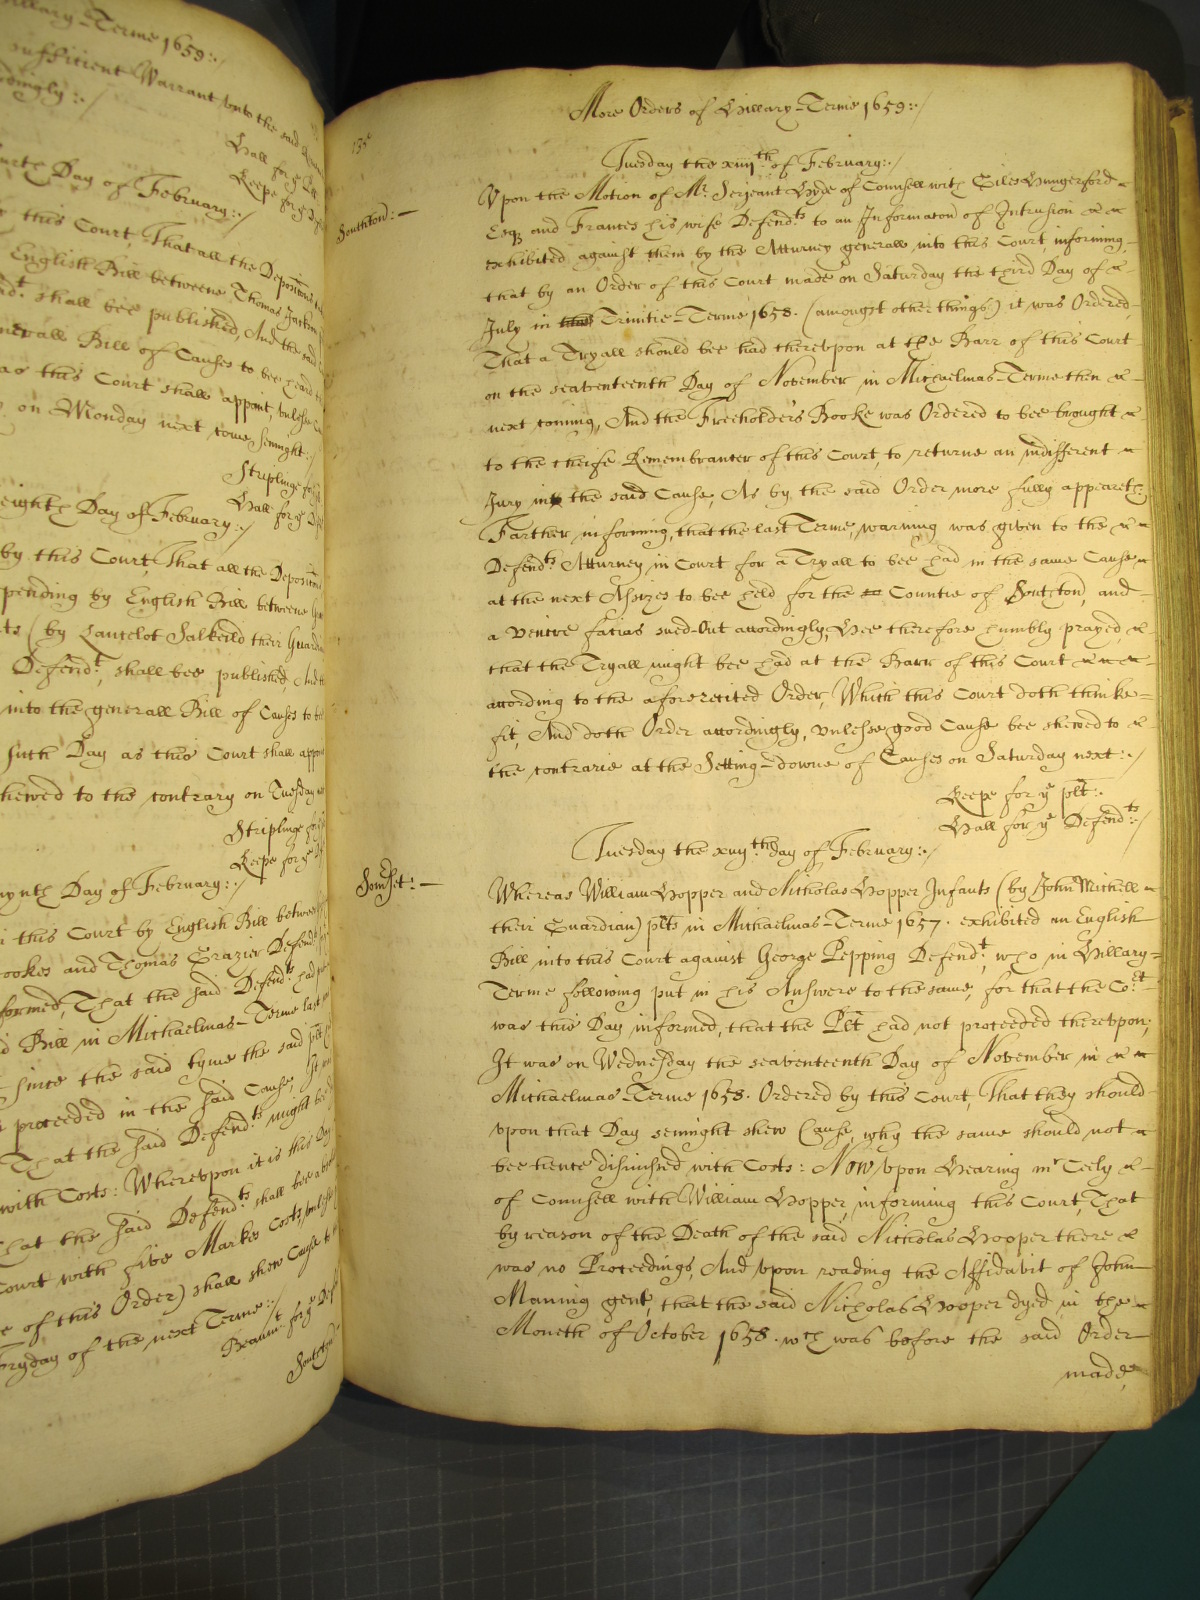 Hillary-Terme 1659:/
sufficient Warrant unto the said
dingly:/
Hall for ye
Keepe for ye
Day of February:/
this Court, That all the Depositions
English Bill betweene Thomas Jackson
shall bee published, And the said
nerall Bill of Causes to bee heard
as this Court shall appoint, unlesse
on Monday next come Sennight:/
Striplinge for ye
Hall for ye
eighth Day of February:/
by this Court, That all the Depositions
pending by English Bill betweene
ts (by Lancelot Salkeild their Guardian
Defendt, shall bee published, And
into the generall Bill of Causes to be
such Day as this Court shall appoint
shewed to the contrary on Tuesday
Striplinge for
Keepe for ye
nynth Day of February:/
this Court by English Bill between
ookes and Thomas Grazier Defendts
formed, That the said Defendts had
Bill in Michaelmas-Terme last
since the said tyme the said plt
proceeded in the said Cause, It
That the said Defendts might bee
with Costs: Whereupon it is this Day
that the said Defendts shall bee
Court with five Markes Costs, unlesse
of this Order) shall shew Cause
day of the next Terme:/
Beaumt for ye Def
Southton
More Orders of Hillary-Terme 1659:/
135
Tuesday the xiiijth of February:/
Southton:—
Upon the Motion of Mr. Serjeant Hyde of Counsell with Giles Hungerford
Esq and Frances his wife Defendts to an Informacon of Intrusion
exhibited against them by the Atturney generall into this Court, informing
that by an Order of this Court made on Saturday the third Day of
July in Trinitie-Terme 1658. (amongst other things) it was Ordered,
That a Tryall should bee had thereupon at the Barr of this Court
on the seaventeenth Day of November in Michaelmas-Terme then
next coming, And the Freeholder's Booke was Ordered to bee brought
to the cheife Remembrancer of this Court, to returne an indifferent
Jury in the said Cause, As by the said Order more fully appeareth,
Farther informing, that the last Terme, warning was given to the
Defendts Atturney in Court for a Tryall to bee had in the same Cause
at the next Assizes to bee held for the Countie of Southton, and
a venire facias sued-Out accordingly, Hee therefore humbly prayed,
that the Tryall might bee had at the Barr of this Court
according to the aforerecited Order, Which this Court doth thinke
fit, And doth Order accordingly, unlesse good Cause bee shewed to
the contrarie at the Setting-downe of Causes on Saturday next:/
Keepe for ye plt:
Hall for ye Defendts:/
Tuesday the xiiijth day of February:/
Somset:—
Whereas William Hopper and Nicholas Hopper Infants (by John Michell
their Guardian) plts in Michaelmas-Terme 1657. exhibited an English
Bill into this Court against George Pepping Defendt, who in Hillary-
Terme following put in his Answere to the same, for that the Cort
was this Day informed, that the Plt had not proceeded thereupon;
It was on Wednesday the seaventeenth Day of November in
Michaelmas-Terme 1658. Ordered by this Court, That they should
upon that Day sennight shew Cause, why the same should not
bee hence dismissed with Costs: Now upon Hearing mr Ceely
of Counsell with William Hopper, informing this Court, That
by reason of the Death of the said Nicholas Hooper there
was no Proceedings, And upon reading the Affidavit of John
Manning gent, that the said Nicholas Hooper dyed in the
Moneth of October 1658. wch was before the said Order
made,